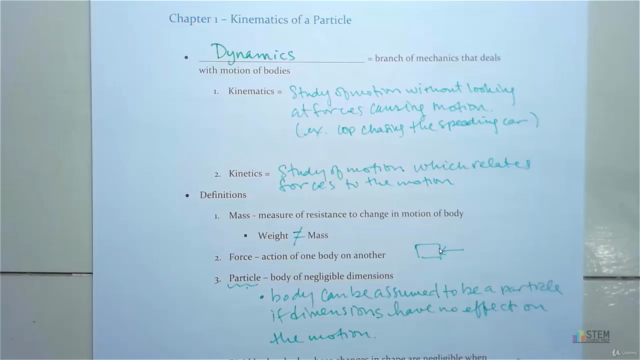 Chapter 1 – Kinematics of a Particle
• Dynamics = branch of mechanics that deals
with motion of bodies
1. Kinematics = Study of motion without looking
at forces causing motion.
(ex. cop chasing the speeding car)
2. Kinetics = Study of motion which relates
forces to the motion
• Definitions
1. Mass - measure of resistance to change in motion of body
▪ Weight ≠ Mass
2. Force – action of one body on another
3. Particle – body of negligible dimensions
• body can be assumed to be a particle
if dimensions have no effect on
the motion.
STEM